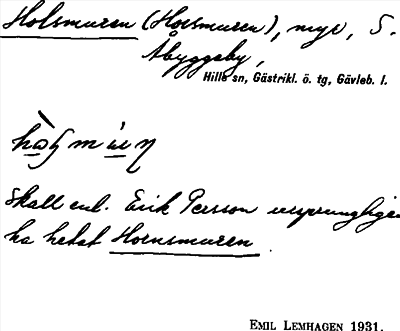 Holsmuren (Horsmuren), myr, S.
Åbyggeby,
Hille sn, Gästrikl. ö. tg, Gävleb. l.
Skall enl. Erik Persson ursprungligen
ha hetat Hornsmuren
EMIL LEMHAGEN 1931.